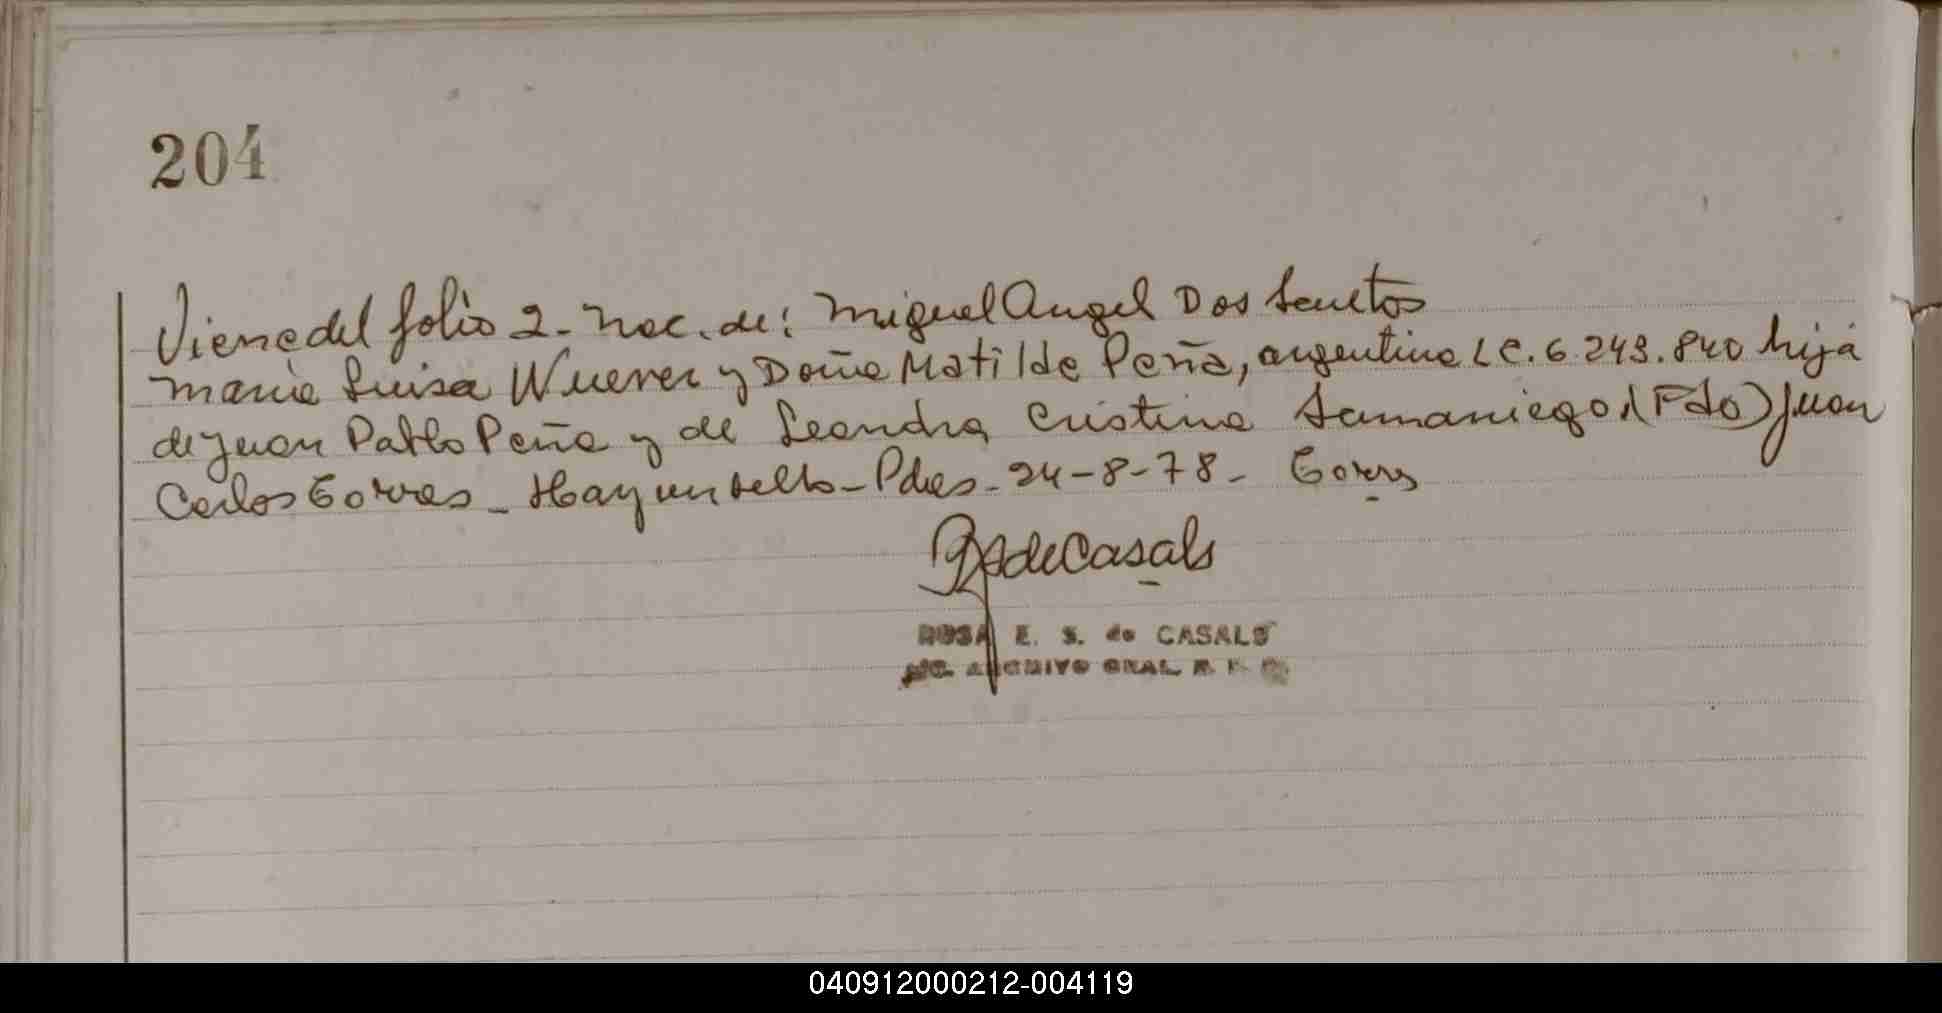 204
Viene del folio 2- Nac. de: Miguel Angel Dos Santos
Maria Luisa Wuever y Doña Matilde Peña, argentina L C. 6.243.840 hija
de Juan Pablo Peña y de Leandra Cristina Samaniego. (Fdo) Juan
Carlos Torres - Hay un sello - Pdas - 24-8-78 - Torres
R S de Casals
ROSA E. S. de CASALS
ARCHIVO GRAL. R. P.
040912000212-004119